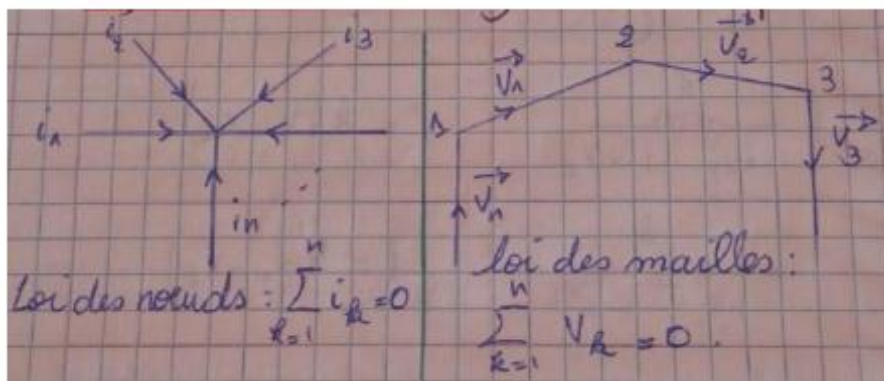 i₂ i₃
i₁
iₙ
Loi des nœuds : ∑ₖ₌₁ⁿ iₖ = 0
2
1 3
V₁⃗ V₂⃗
V₃⃗
Vₙ⃗
Loi des mailles :
∑ₖ₌₁ⁿ Vₖ = 0.